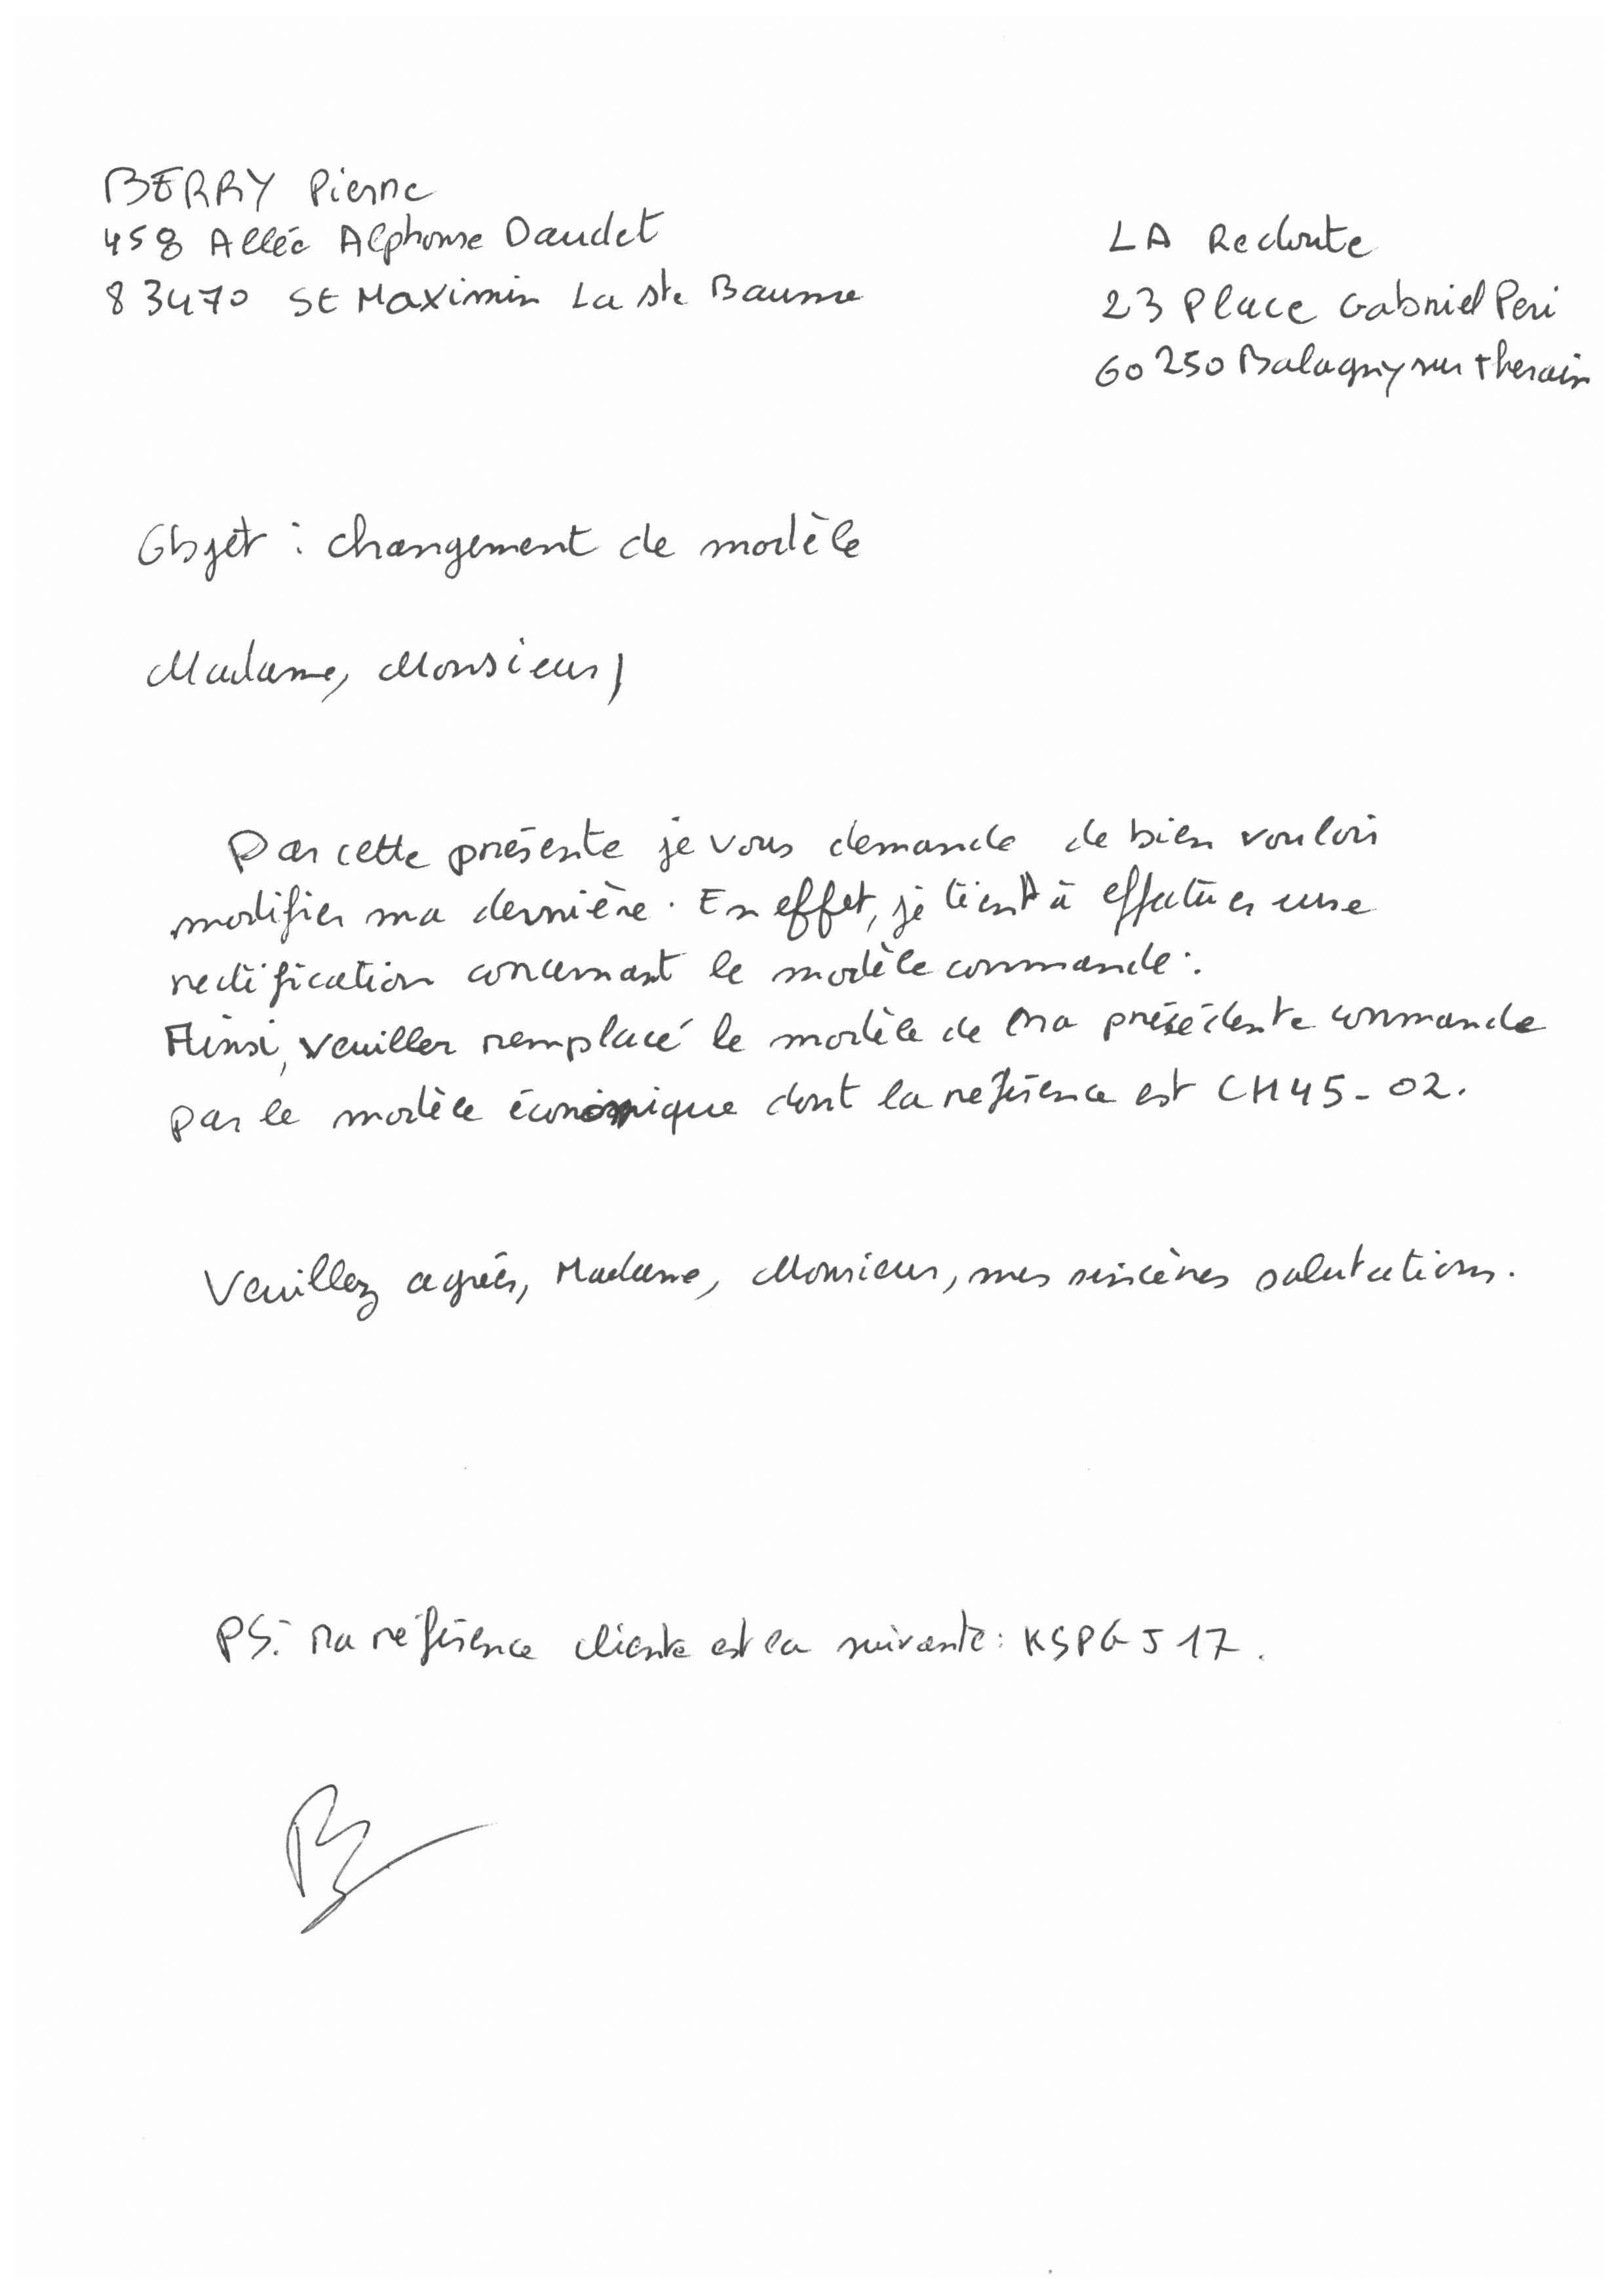 BERRY Pierre
458 Allée Alphonse Daudet
83470 St Maximin La Ste Baume
LA Redoute
23 Place Gabriel Peri
60250 Balagny sur therain
Objet : changement de modèle
Madame, Monsieur,
Par cette présente je vous demande de bien vouloir
modifier ma dernière. En effet, je tient à effectuer une
rectification concernant le modèle commandé.
Ainsi, veuiller remplacé le modèle de ma présédente commande
par le modèle économique dont la référence est CH45-02.
Veuillez agréer, Madame, Monsieur, mes sincères salutations.
PS: Ma référence cliente est la suivante: KSPGJ17.